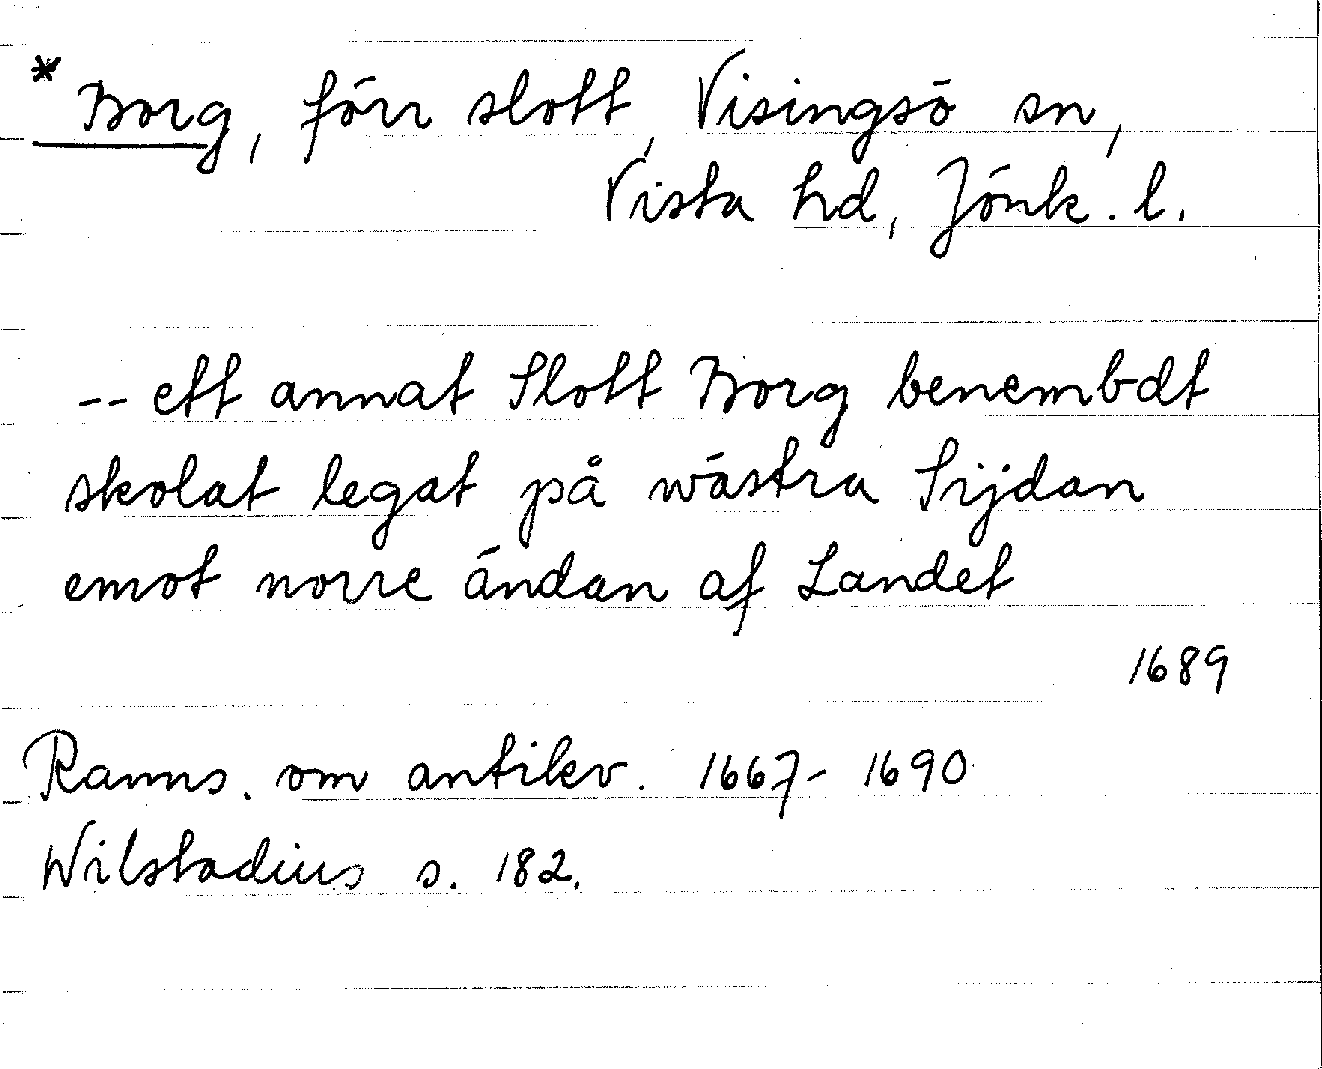 * Borg, förr slott, Visingsö sn,
Vista hd, Jönk. l.
-- ett annat Slott Borg benembdt
skolat legat på wästra Sijdan
emot norre ändan af Landet
1689
Ranns. om antikv. 1667- 1690
Wilstadius s. 182.